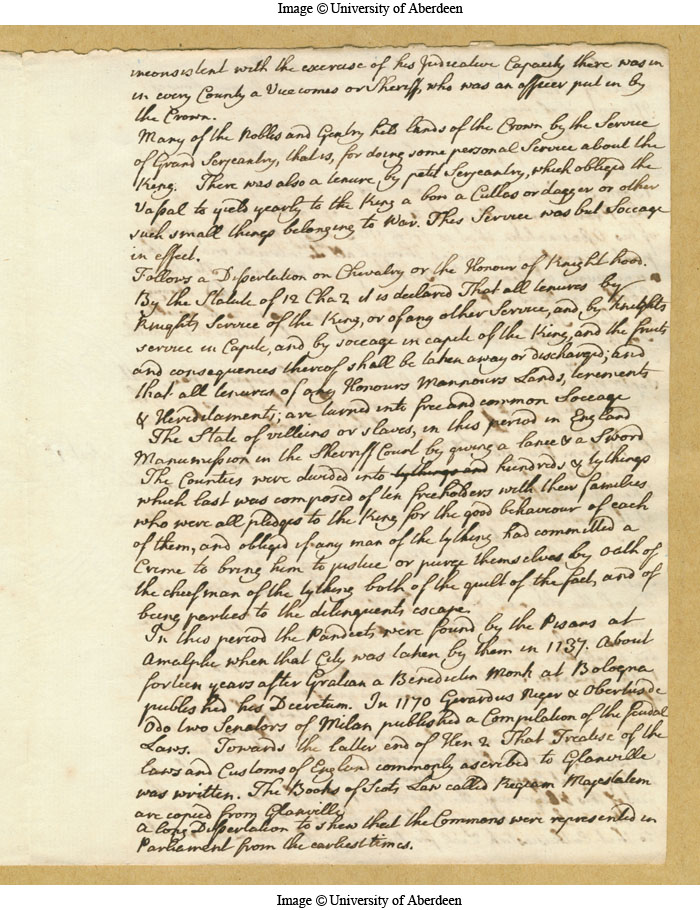 Image © University of Aberdeen
inconsistent with the exercise of his Judicative Capacity there was in
in every County a Vicecomes or Sheriff, who was an officer put in by
the Crown.
Many of the Nobles and Gentry held lands of the Crown by the Service
of Grand Serjeantry, that is, for doing some personal Service about the
King. There was also a tenure by petit Serjeantry, which obliged the
Vassal to yield yearly to the King a bow a Cutlas or dagger or other
such small things belonging to War. This Service was but Soccage
in effect.
Follows a Dissertation on Chevalry or the Honour of Knight hood.
By the Statute of 12 Cha 2 it is declared That all tenures by
Knights Service of the King, or of any other Service, and by Knights
service in Capite, and by soccage in capite of the King, and the fruits
and consequences thereof shall be taken away or discharged; and
that all tenures of any Honours Mannours Lands, tenements
& Hereditaments; are turned into free and common Soccage
The State of villeins or slaves, in this period in England
Manumission in the Sherriff Court by giving a lance & a Sword
The Counties were divided into tythings and hundreds & tythings
which last was composed of ten freeholders with their families
who were all pledges to the King for the good behaviour of each
of them, and obliged if any man of the tything had committed a
Crime to bring him to justice or purge themselves by oath of
the chief man of the tything both of the guilt of the fact, and of
being parties to the delinquents escape.
In this period the Pandects were found by the Pisans at
Amalphi when that City was taken by them in 1137. About
forteen years after Gratian a Benedictin Monk at Bologna
published his Decretum. In 1170 Gerardus Niger & Obertus de
Odo two Senators of Milan published a Compilation of the feudal
Laws. Towards the latter end of Hen 2 That Treatise of the
laws and Customs of England commonly ascribed to Glanville
was written. The Books of Scots Law called Regiam Majestatem
are copied from Glanville
A long Dissertation to shew that the Commons were represented in
Parliament from the earliest times.
Image © University of Aberdeen